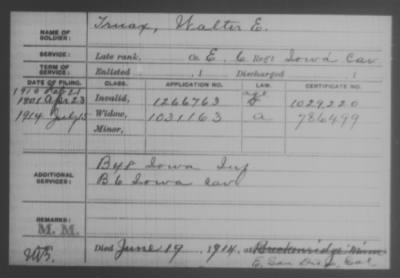 NAME OF SOLDIER: Truax, Walter E.
SERVICE: Late rank, Co. E, 6 Reg't Iowa Cav
TERM OF SERVICE: Enlisted , 1 Discharged , 1
DATE OF FILING. CLASS. APPLICATION NO. LAW. CERTIFICATE NO.
1901 Apr 23 Invalid, 1266763 1029220
1914 July 15 Widow, 1031163 a 786499
Minor,
ADDITIONAL SERVICES: B 48 Iowa Inf
B 6 Iowa Cav
REMARKS:
M. M. Died June 19, 1914, at Breckenridge Minn
E. San Diego, Cal